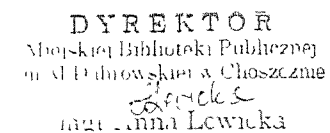 DYREKTOR
Miejskiej Biblioteki Publicznej
im. M. Dąbrowskiej w Choszcznie
Lewicka
mgr Anna Lewicka